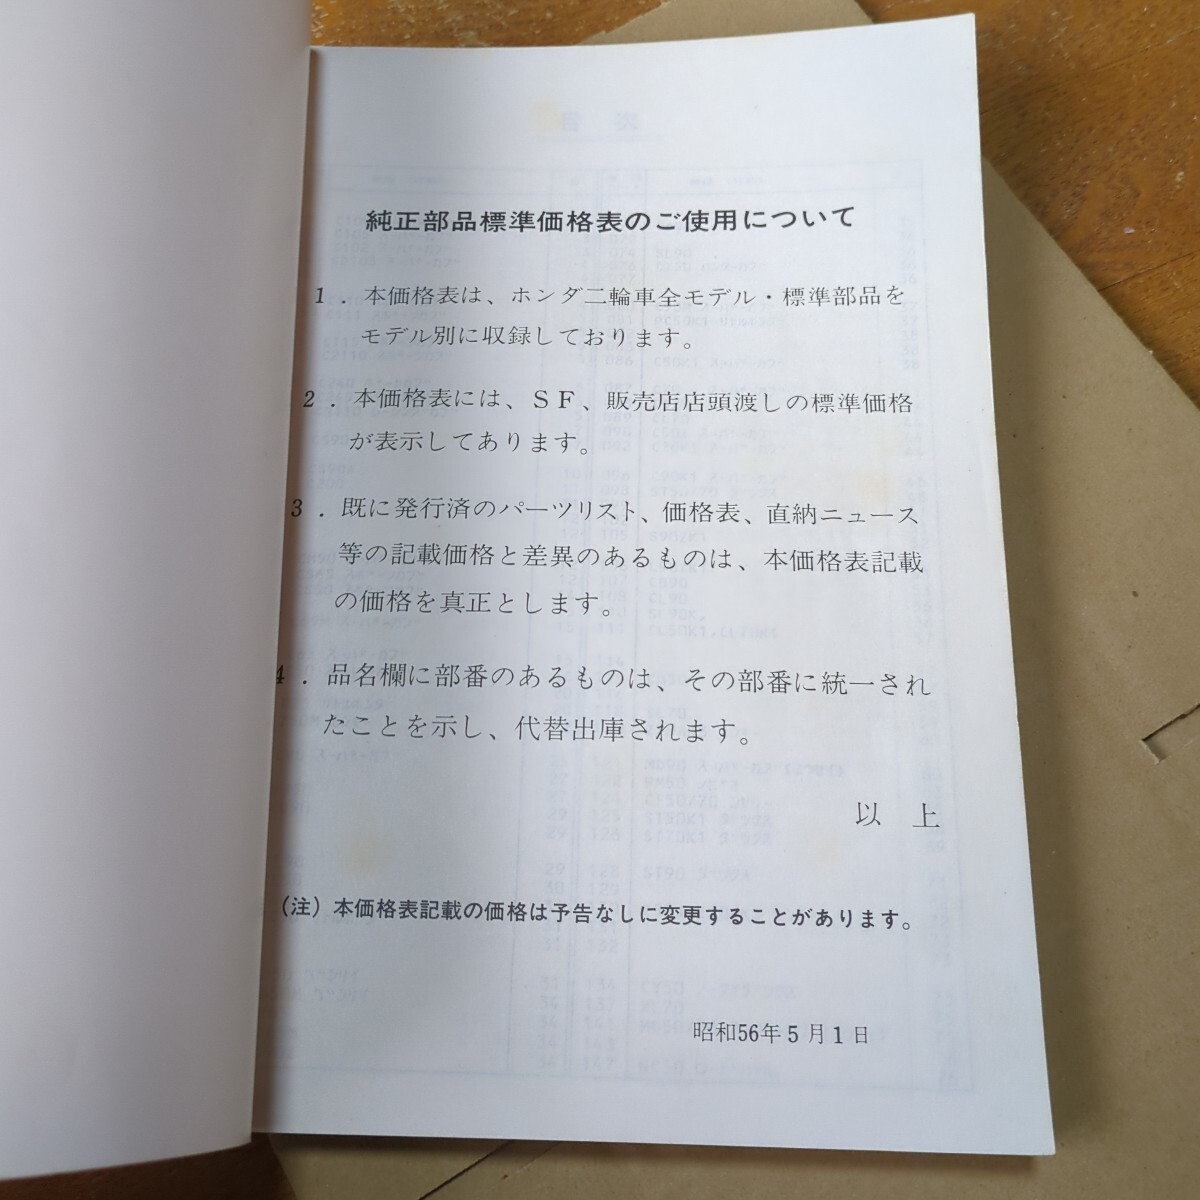 純正部品標準価格表のご使用について
1．本価格表は、ホンダ二輪車全モデル・標準部品を
モデル別に収録しております。
2．本価格表には、ＳＦ、販売店店頭渡しの標準価格
が表示してあります。
3．既に発行済のパーツリスト、価格表、直納ニュース
等の記載価格と差異のあるものは、本価格表記載
の価格を真正とします。
4．品名欄に部番のあるものは、その部番に統一され
たことを示し、代替出庫されます。
以上
（注）本価格表記載の価格は予告なしに変更することがあります。
昭和56年5月1日